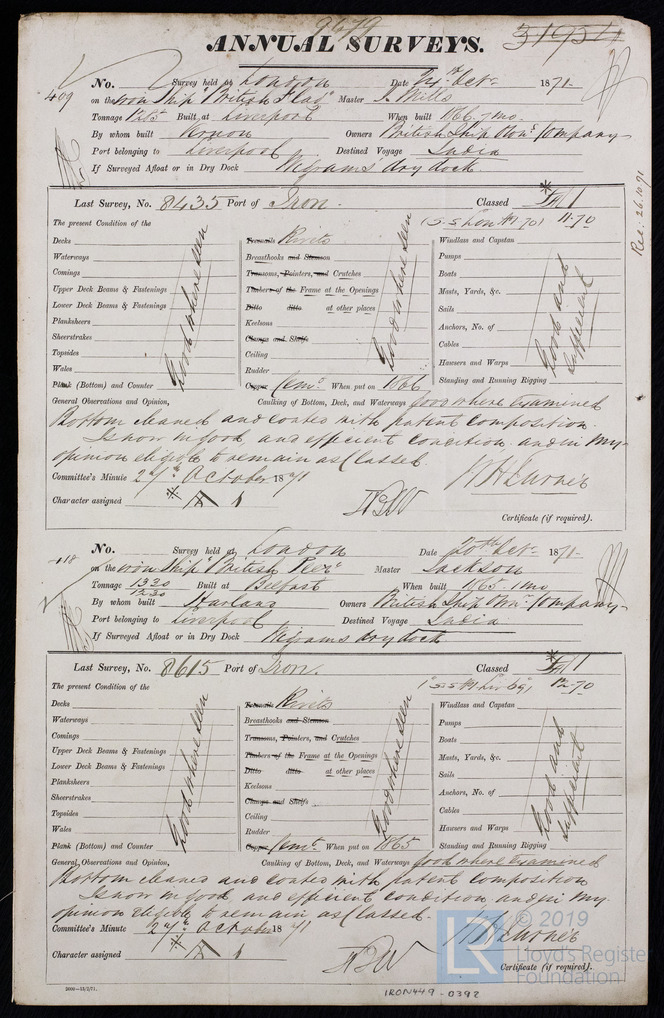 9679
ANNUAL SURVEYS.
No. Survey held at London Date Octr 1871
409 on the Iron Ship "British Flag" Master J. Mills
Tonnage Built at Liverpool When built 1866. 7 mo.
By whom built Vernon Owners British Ship Own Company
Port belonging to Liverpool Destined Voyage India
If Surveyed Afloat or in Dry Dock Wigrams dry dock
Rec: 26.10.91
Last Survey, No. 8435 Port of Iron. Classed
11.70
The present Condition of the
Decks
Waterways
Comings
Upper Deck Beams & Fastenings
Lower Deck Beams & Fastenings
Planksheers
Sheerstrakes
Topsides
Wales
Plank (Bottom) and Counter
Good where seen
Treenails Rivets
Breasthooks and Stemson
Transoms, Pointers, and Crutches
Timbers of the Frame at the Openings
Ditto ditto at other places
Keelsons
Clamps and Shelfs
Ceiling
Rudder
Copper Cemt. When put on 1866
Good where seen
Windlass and Capstan
Pumps
Boats
Masts, Yards, &c.
Sails
Anchors, No. of
Cables
Hawsers and Warps
Standing and Running Rigging
Good and
Sufficient
General Observations and Opinion, Caulking of Bottom, Deck, and Waterways Good where examined
Bottom cleaned and coated with patent composition.
Is now in good and efficient condition and in my
opinion eligible to remain as Classed.
Committee's Minute 27th October 1871
Character assigned A 1
Certificate (if required).
No. Survey held at London Date 20th Octr 1871
418 on the Iron Ship "British Peer" Master Jackson
Tonnage 1320 Built at Belfast When built 1865. 1 mo
By whom built Harland Owners British Ship Own Company
Port belonging to Liverpool Destined Voyage India
If Surveyed Afloat or in Dry Dock Wigrams dry dock
Last Survey, No. 8615 Port of Iron. Classed
12.70
The present Condition of the
Decks
Waterways
Comings
Upper Deck Beams & Fastenings
Lower Deck Beams & Fastenings
Planksheers
Sheerstrakes
Topsides
Wales
Plank (Bottom) and Counter
Good where seen
Treenails Rivets
Breasthooks and Stemson
Transoms, Pointers, and Crutches
Timbers of the Frame at the Openings
Ditto ditto at other places
Keelsons
Clamps and Shelfs
Ceiling
Rudder
Copper Cemt. When put on 1865
Good where seen
Windlass and Capstan
Pumps
Boats
Masts, Yards, &c.
Sails
Anchors, No. of
Cables
Hawsers and Warps
Standing and Running Rigging
Good and
Sufficient
General Observations and Opinion, Caulking of Bottom, Deck, and Waterways Good where examined
Bottom cleaned and coated with patent composition
Is now in good and efficient condition, and in my
opinion eligible to remain as Classed.
Committee's Minute 27th October 1871
Character assigned A 1
Certificate (if required).
2000—13/2/71.
IRON449-0392
LR © 2019
Lloyd's Register
Foundation